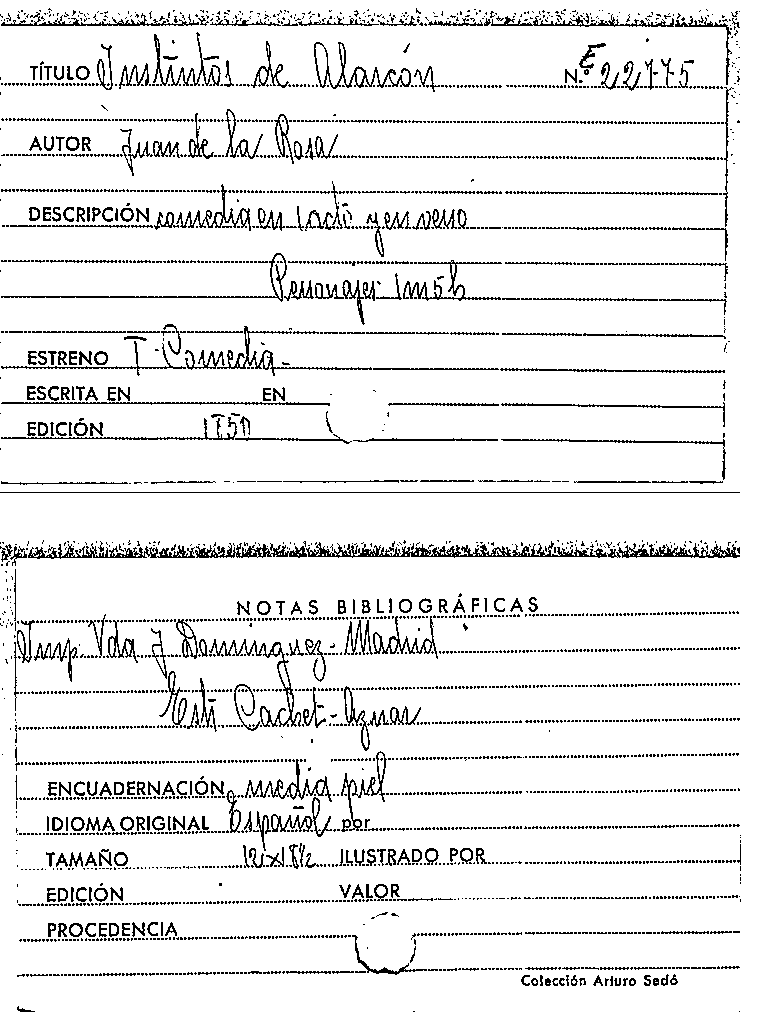 TÍTULO Instintos de Alarcón N.º E 22775
AUTOR Juan de la Rosa
DESCRIPCIÓN comedia en 1 acto y en verso
Personajes 1m5h
ESTRENO T. Comedia -
ESCRITA EN EN
EDICIÓN 1850
NOTAS BIBLIOGRÁFICAS
Imp. Vda J Dominguez - Madrid
Estr Cachet - Aznar
ENCUADERNACIÓN media piel
IDIOMA ORIGINAL Español por
TAMAÑO 12½x18½ ILUSTRADO POR
EDICIÓN VALOR
PROCEDENCIA
Colección Arturo Sedó